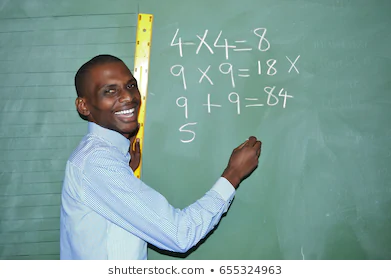 4-X4=8
9×9=18 X
9+9=84
5
shutterstock.com • 655324963